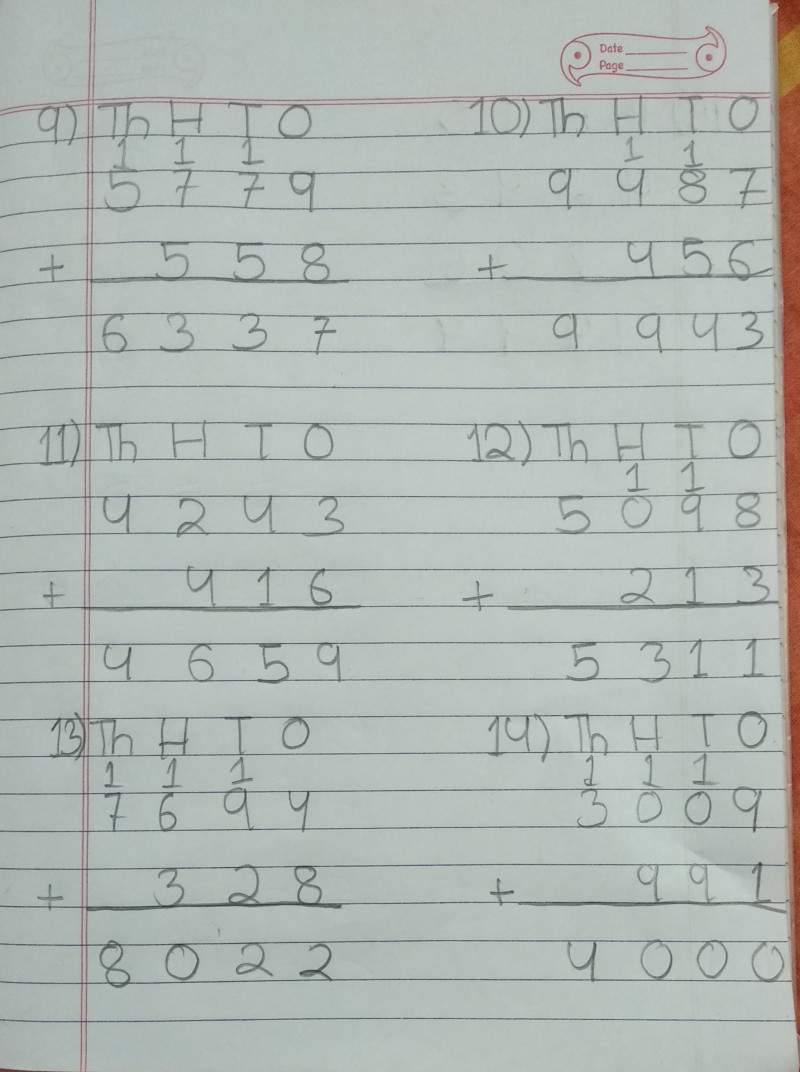 Date
Page
9) Th H T O 10) Th H T O
1 1 1 1 1
5 7 7 9 9 4 8 7
+ 5 5 8 + 4 5 6
6 3 3 7 9 9 4 3
11) Th H T O 12) Th H T O
1 1
4 2 4 3 5 0 9 8
+ 4 1 6 + 2 1 3
4 6 5 9 5 3 1 1
13) Th H T O 14) Th H T O
1 1 1 1 1 1
7 6 9 4 3 0 0 9
+ 3 2 8 + 9 9 1
8 0 2 2 4 0 0 0